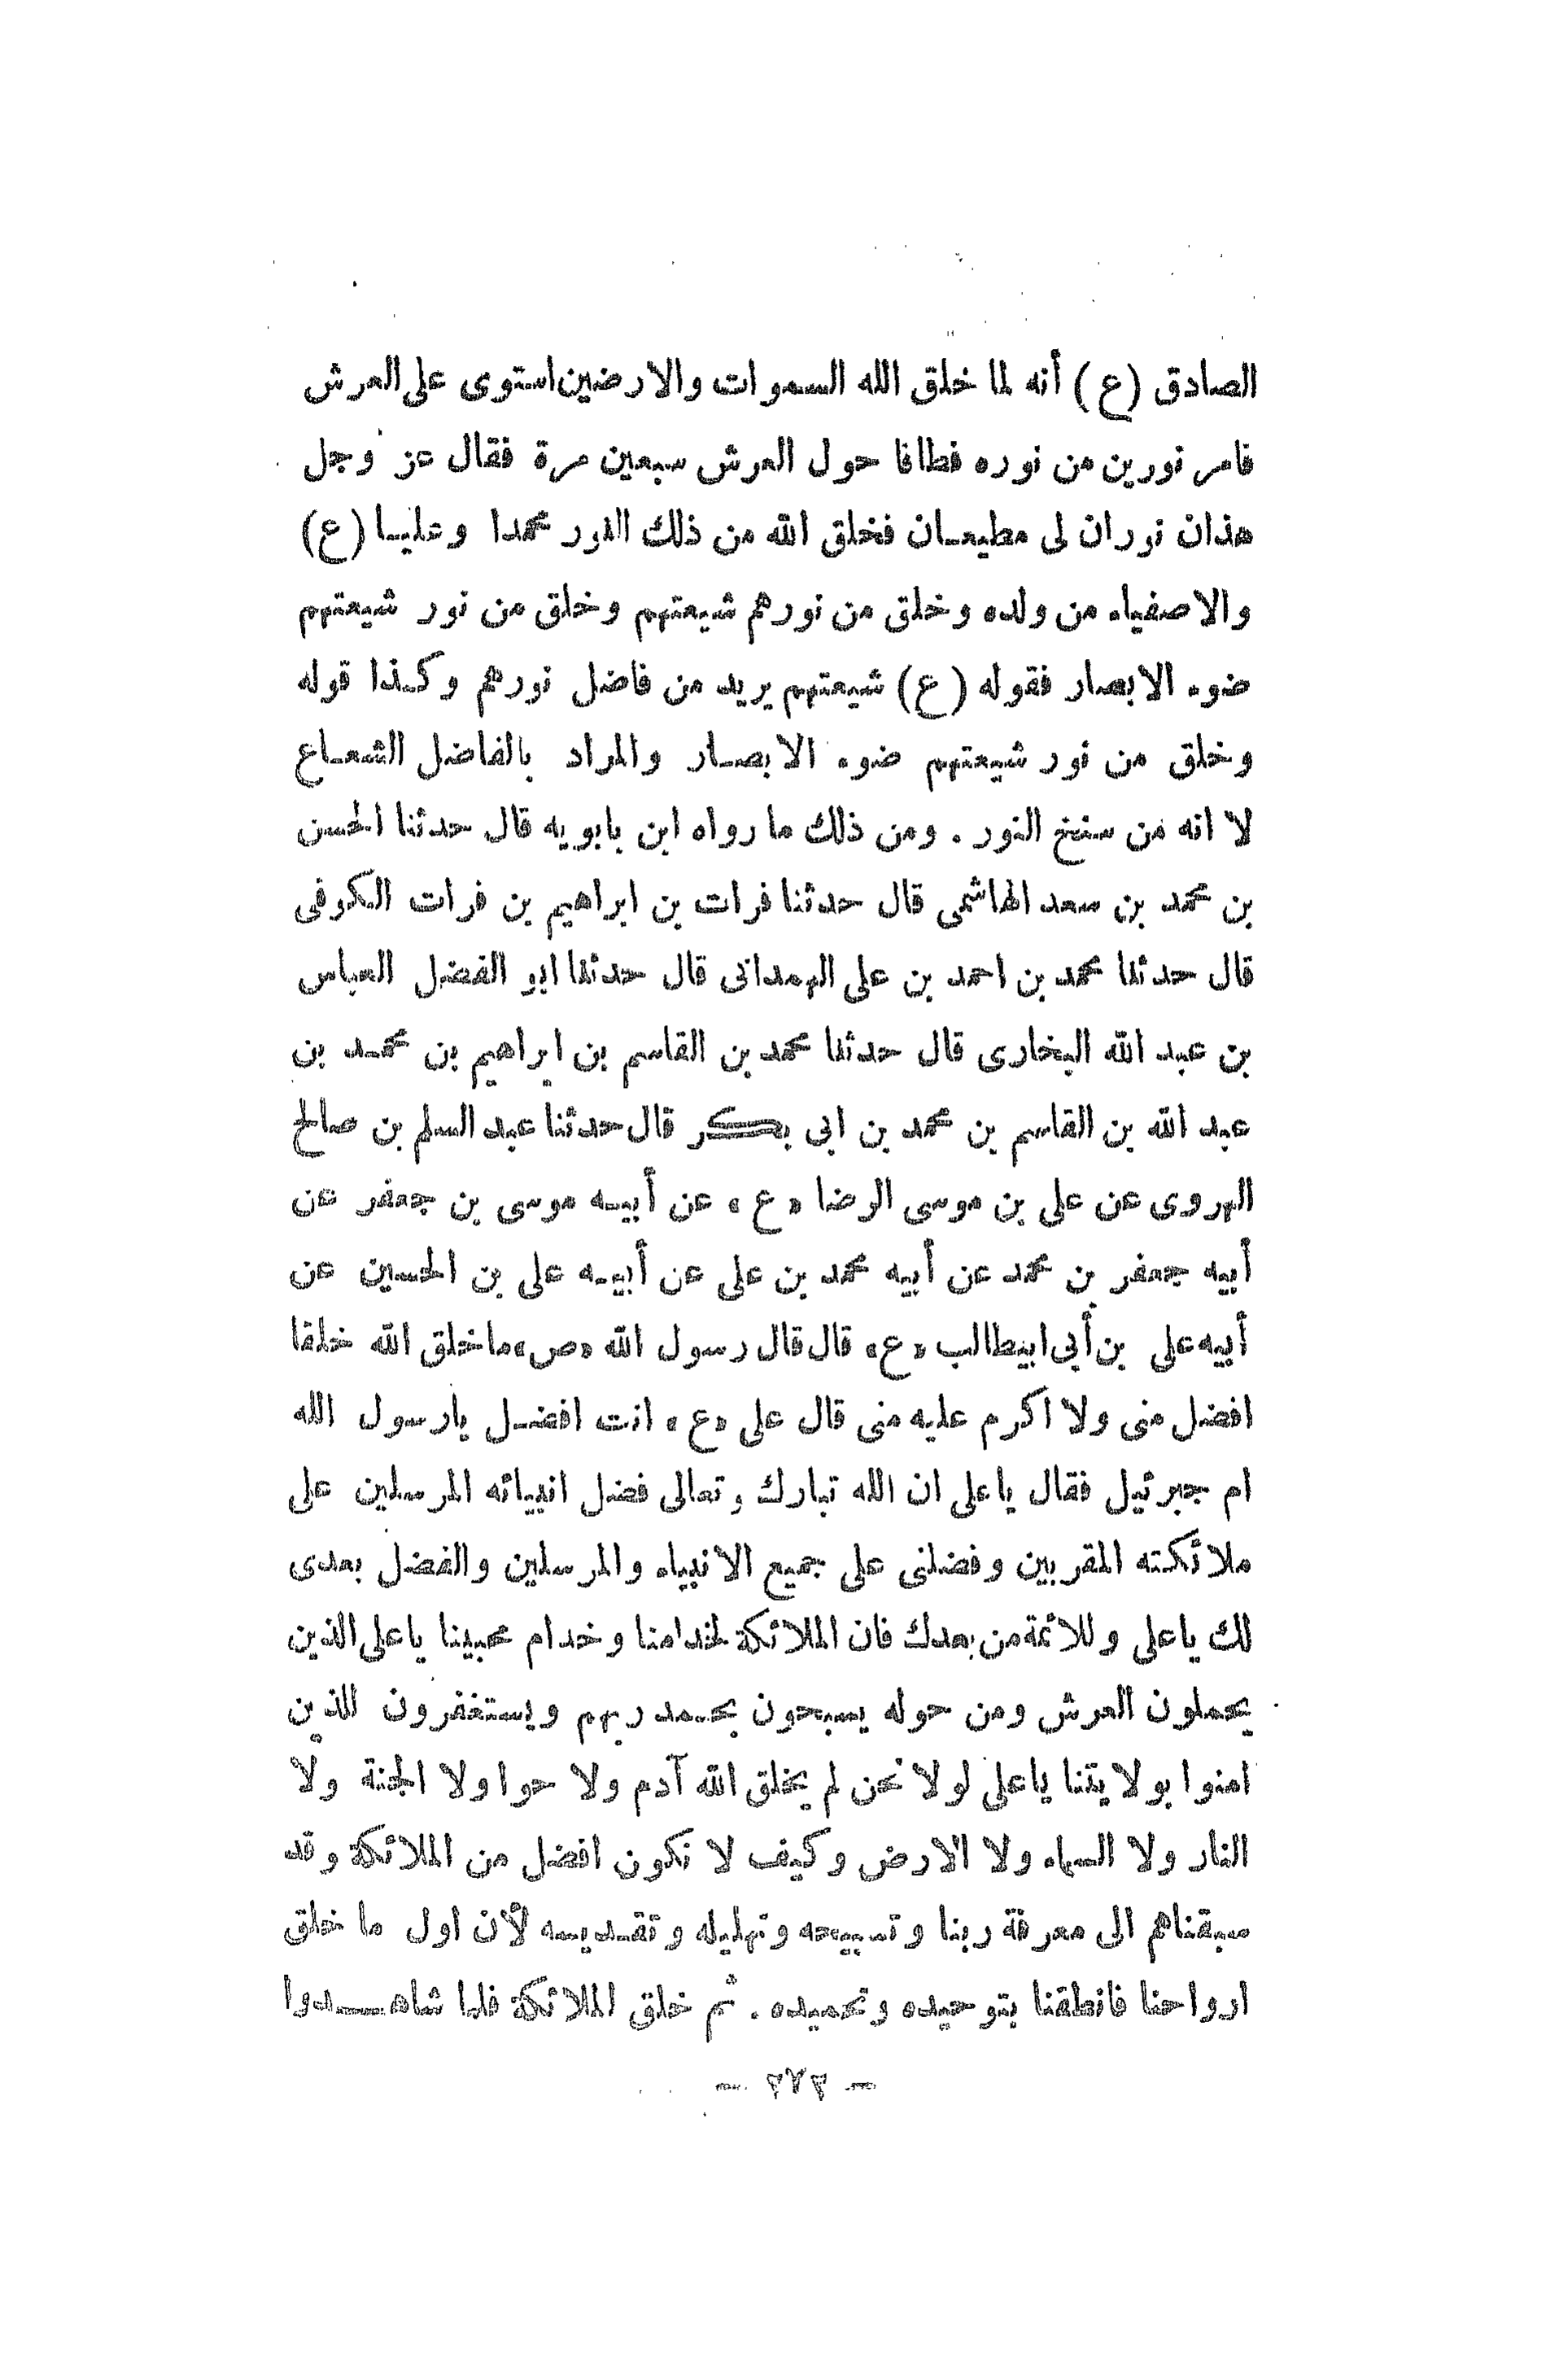 الصادق (ع) أنه لما خلق الله السموات والارضين استوى على العرش
فامر نورين من نوره فطافا حول العرش سبعين مرة فقال عز وجل
هذان نوران لى مطيعان فخلق الله من ذلك النور محمدا وعليا (ع)
والاصفياء من ولده وخلق من نورهم شيعتهم وخلق من نور شيعتهم
ضوء الابصار فقوله (ع) شيعتهم يريد من فاضل نورهم وكذا قوله
وخلق من نور شيعتهم ضوء الابصار والمراد بالفاضل الشعاع
لا انه من سنخ النور . ومن ذلك ما رواه ابن بابويه قال حدثنا الحسن
بن محمد بن سعد الهاشمى قال حدثنا فرات بن ابراهيم بن فرات الكوفى
قال حدثنا محمد بن احمد بن على الهمدانى قال حدثنا ابو الفضل العباس
بن عبد الله البخارى قال حدثنا محمد بن القاسم بن ابراهيم بن محمد بن
عبد الله بن القاسم بن محمد بن ابى بكر قال حدثنا عبد السلم بن صالح
الهروى عن على بن موسى الرضا «ع» عن أبيه موسى بن جعفر عن
أبيه جعفر بن محمد عن أبيه محمد بن على عن أبيه على بن الحسين عن
أبيه على بن أبى ابيطالب «ع» قال قال رسول الله «ص» ما خلق الله خلقا
افضل منى ولا اكرم عليه منى قال على «ع» انت افضل يارسول الله
ام جبرئيل فقال ياعلى ان الله تبارك وتعالى فضل انبيائه المرسلين على
ملائكته المقربين وفضلنى على جميع الانبياء والمرسلين والفضل بعدى
لك ياعلى وللائمة من بعدك فان الملائكة لخدامنا وخدام محبينا ياعلى الذين
يحملون العرش ومن حوله يسبحون بحمد ربهم ويستغفرون للذين
امنوا بولايتنا ياعلى لولا نحن لم يخلق الله آدم ولا حوا ولا الجنة ولا
النار ولا السماء ولا الارض وكيف لا نكون افضل من الملائكة وقد
سبقناهم الى معرفة ربنا وتسبيحه وتهليله وتقديسه لأن اول ما خلق
ارواحنا فانطقنا بتوحيده وتحميده . ثم خلق الملائكة فلما شاهدوا